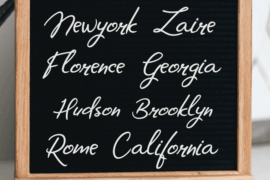 Newyork Zaire
Florence Georgia
Hudson Brooklyn
Rome California